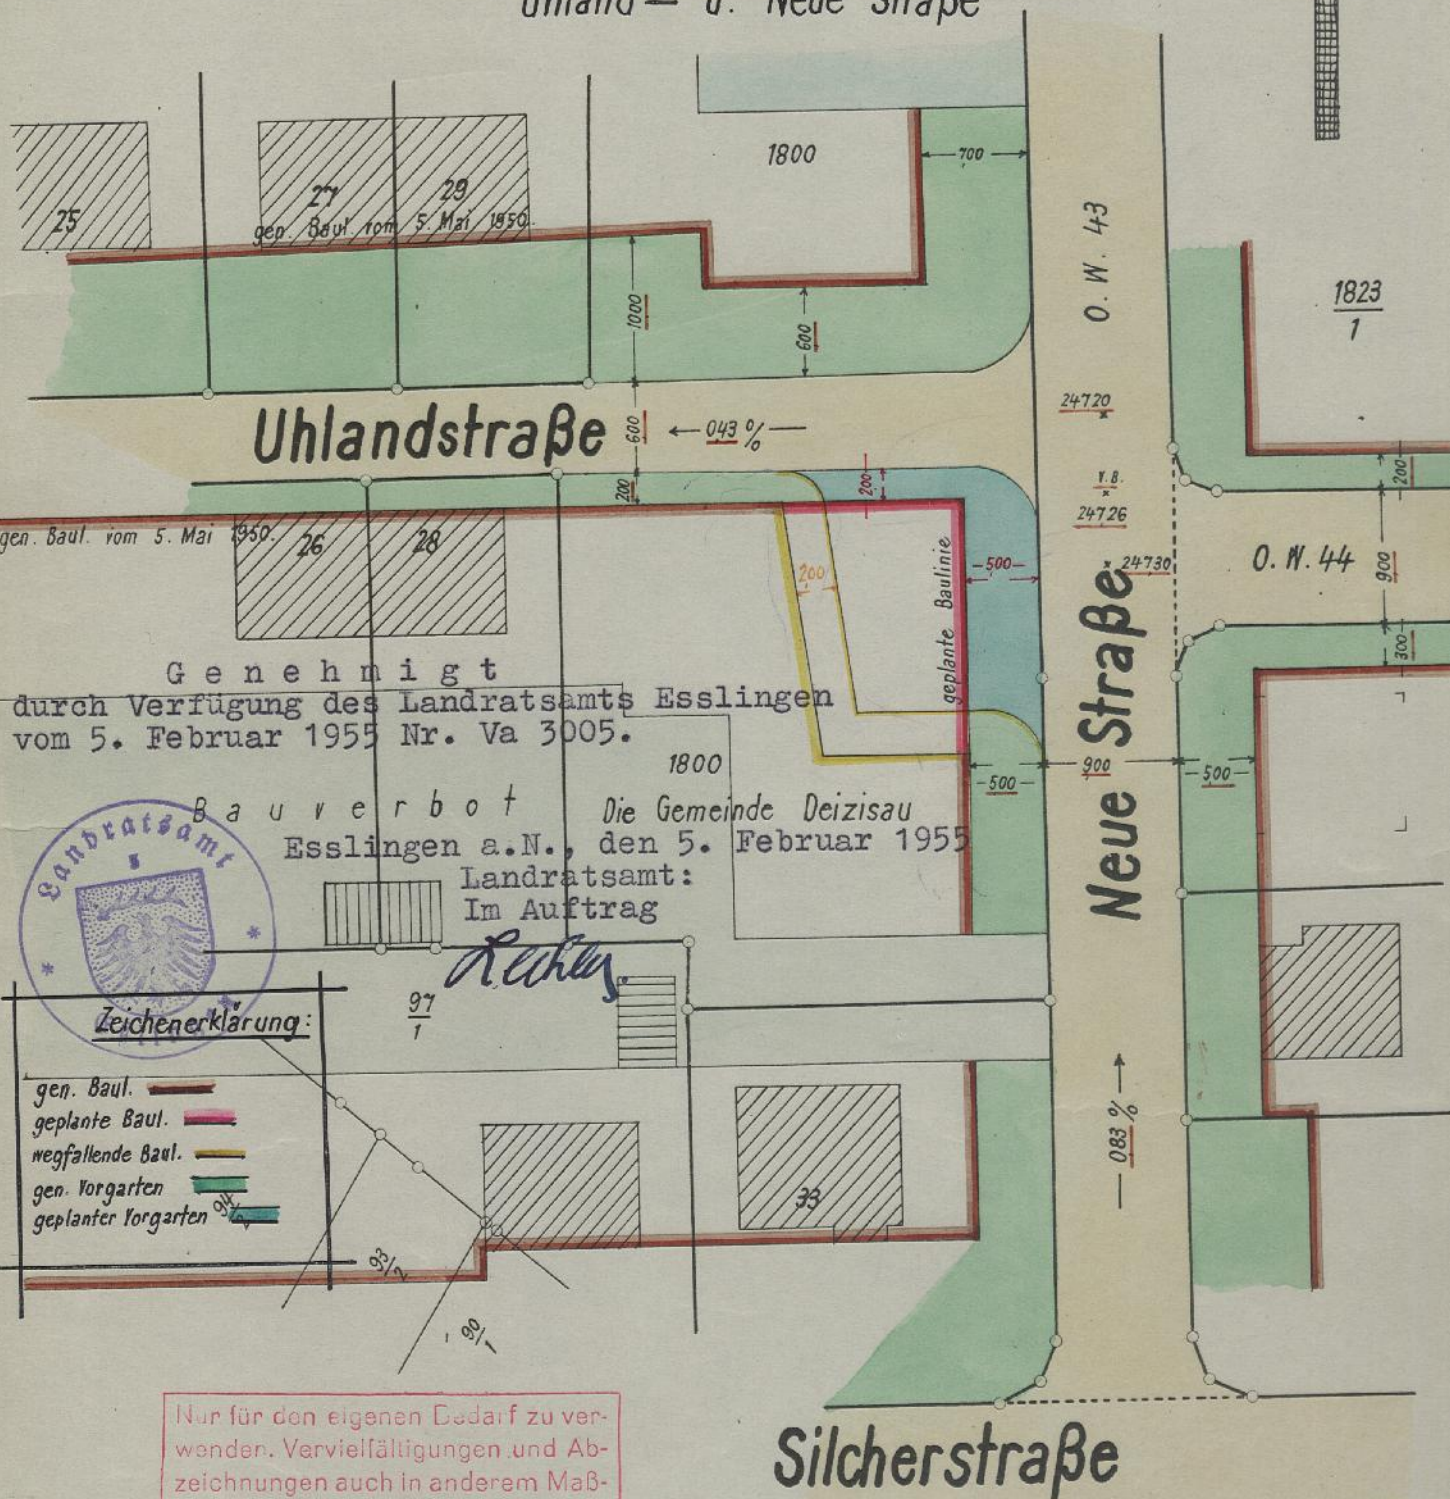 Uhland- u. Neue Straße
1800
700
27
29
25
gen. Baul. vom 5. Mai 1950.
O. W. 43
1823
1
1000
600
24720
Uhlandstraße
600
← 043 % —
200
200
200
V.B.
24726
gen. Baul. vom 5. Mai 1950.
26
28
geplante Baulinie
500
24730
O. W. 44
900
200
300
Genehmigt
durch Verfügung des Landratsamts Esslingen
vom 5. Februar 1955 Nr. Va 3005.
1800
Neue Straße
500
900
500
Bauverbot
Die Gemeinde Deizisau
Esslingen a.N., den 5. Februar 1955
Landratsamt:
Im Auftrag
Landratsamt
97
1
Zeichenerklärung:
gen. Baul.
geplante Baul.
wegfallende Baul.
gen. Vorgarten
geplanter Vorgarten
94/2
93/2
90/1
33
— 083 % →
Nur für den eigenen Bedarf zu ver-
wenden. Vervielfältigungen und Ab-
zeichnungen auch in anderem Maß-
Silcherstraße